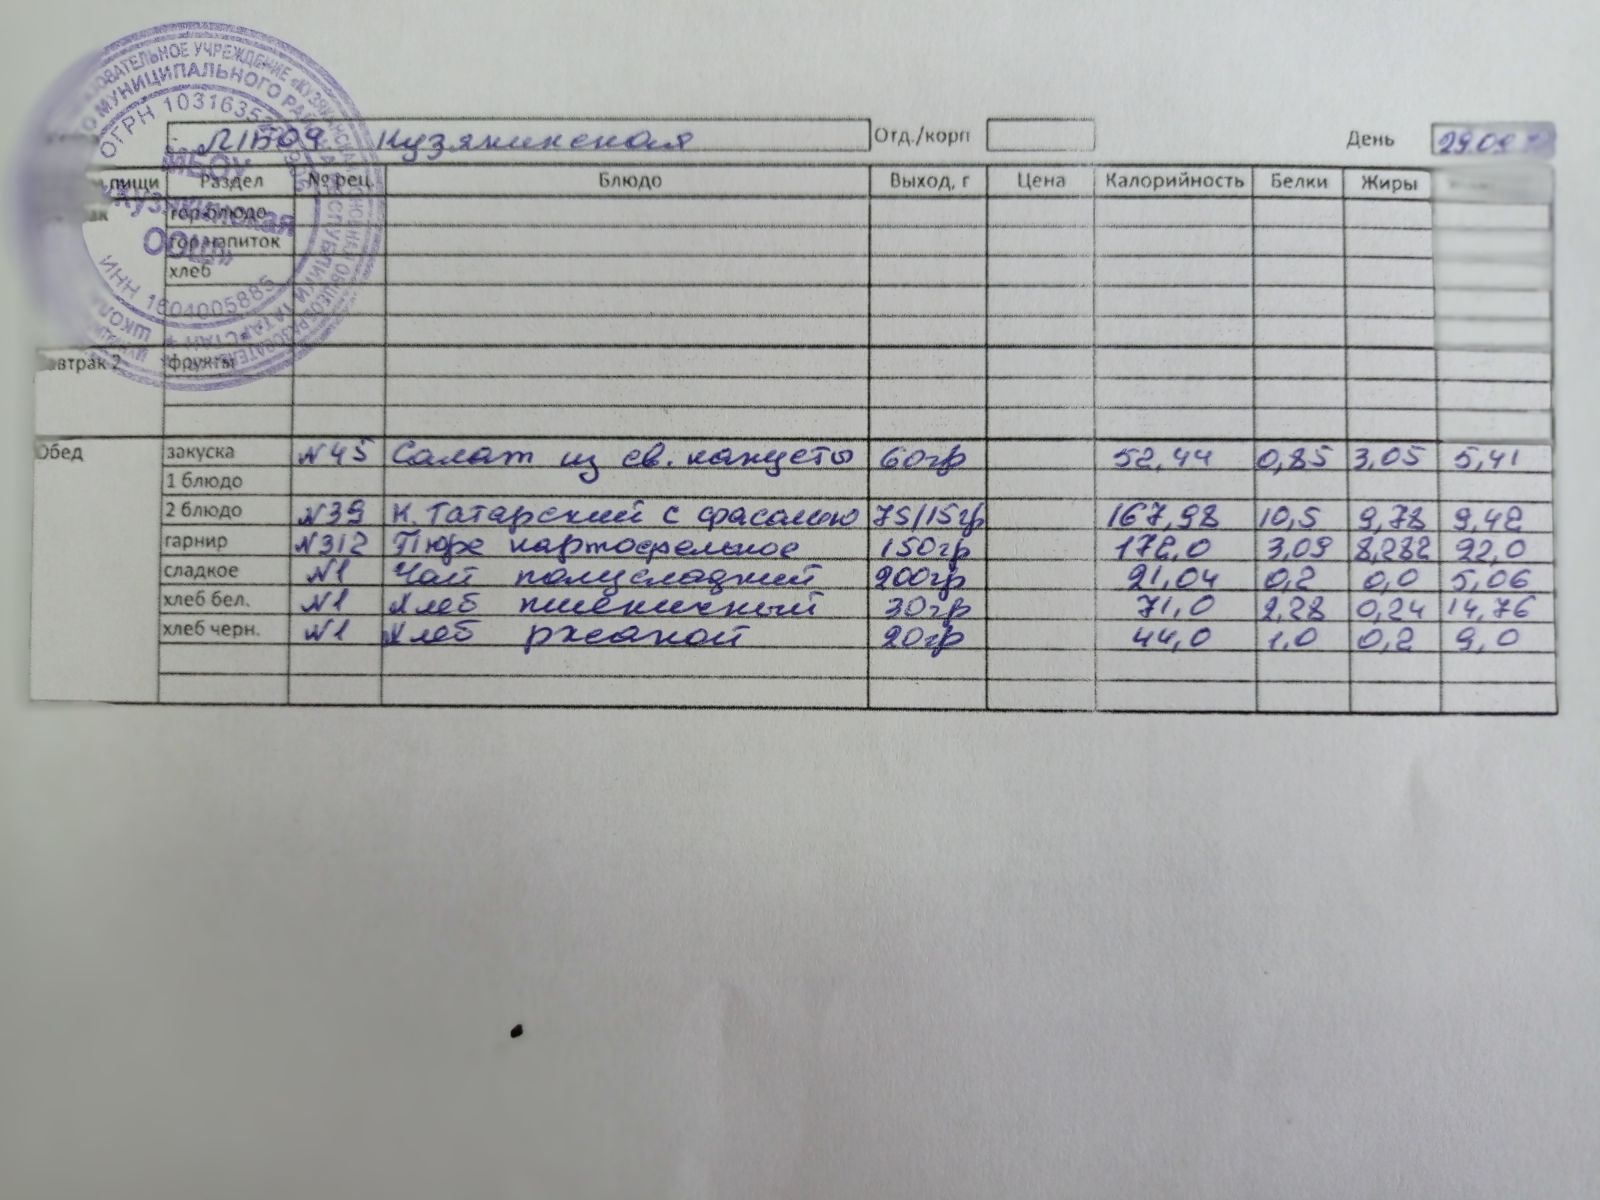 МБОУ Кузякинская Отд./корп День 29.09
пищи Раздел № рец. Блюдо Выход, г Цена Калорийность Белки Жиры
ак гор.блюдо
гор.напиток
хлеб
автрак 2 фрукты
Обед закуска №45 Салат из св. капусты 60гр 52,44 0,85 3,05 5,41
1 блюдо
2 блюдо №39 К. Татарский с фасолью 75/15гр 167,98 10,5 9,78 9,42
гарнир №312 Пюре картофельное 150гр 172,0 3,09 8,282 22,0
сладкое №1 Чай полусладкий 200гр 21,04 0,2 0,0 5,06
хлеб бел. №1 Хлеб пшеничный 30гр 71,0 2,28 0,24 14,76
хлеб черн. №1 Хлеб ржаной 20гр 44,0 1,0 0,2 9,0
МБОУ
«Кузякинская
ООШ»
ИНН 1604005885